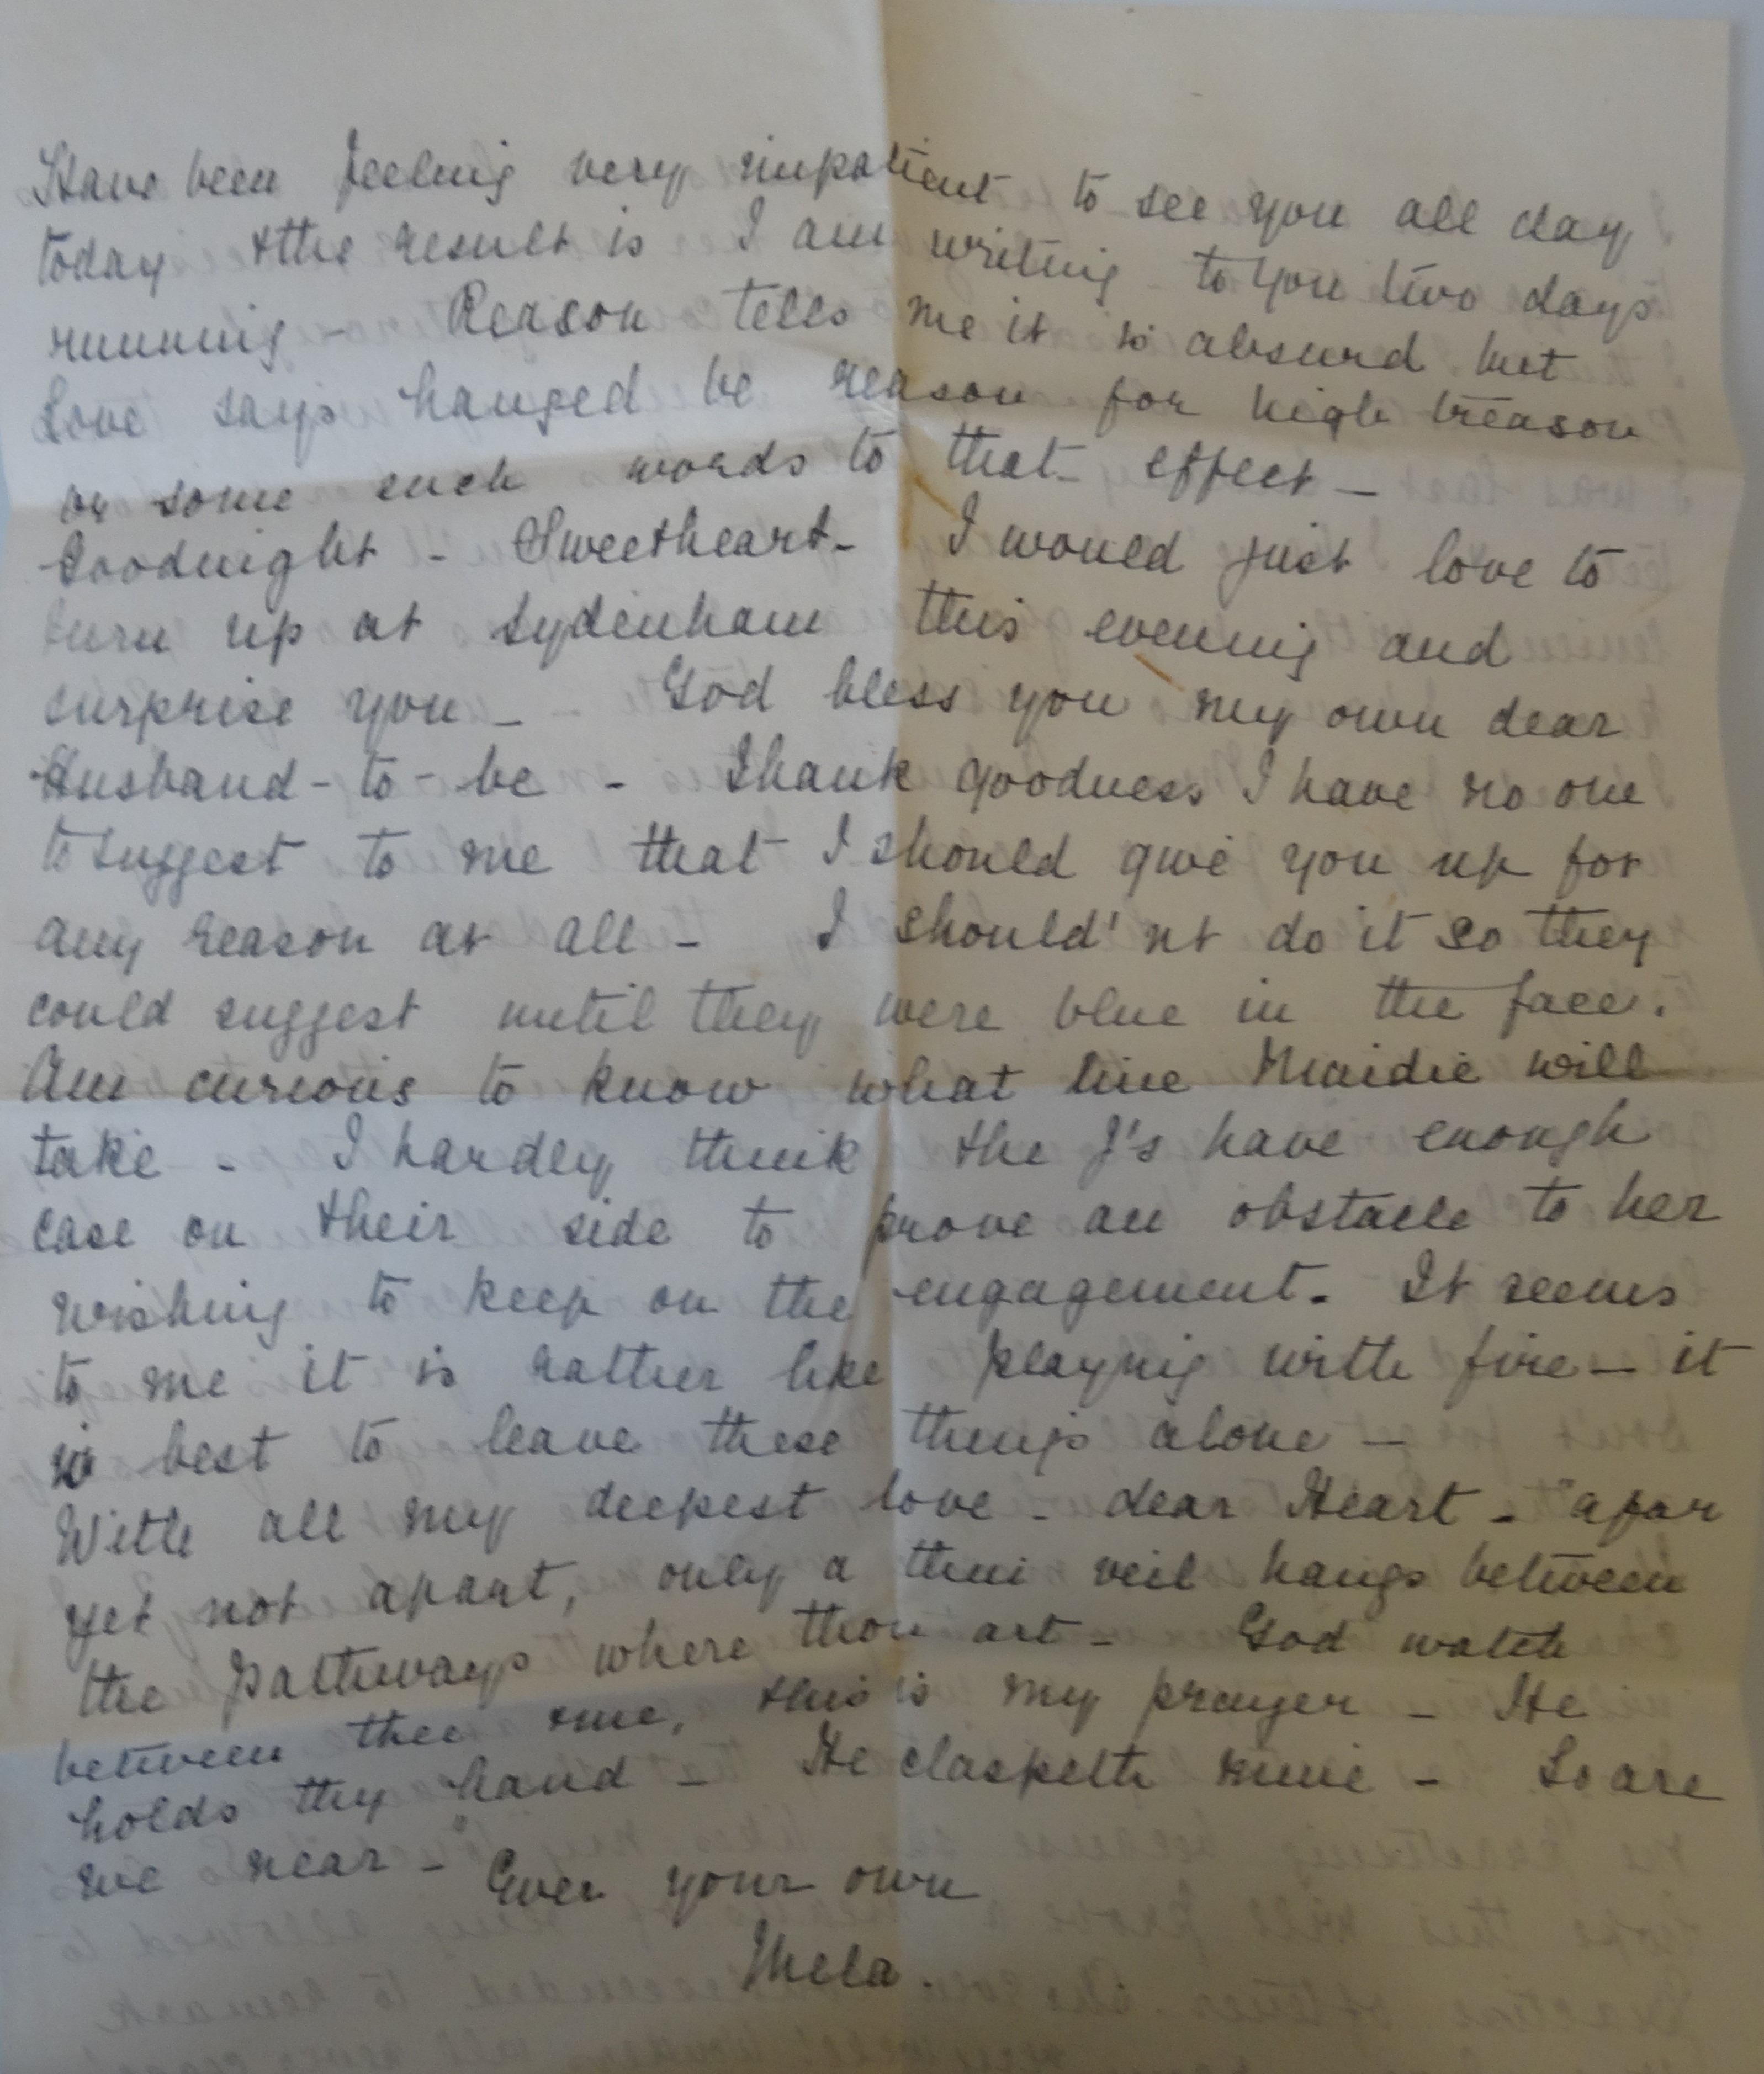 Have been feeling very impatient to see you all day
today & the result is I am writing to you two days
running - Reason tells me it is absurd but
Love says hanged be reason for high treason
or some such words to that effect -
Goodnight - Sweetheart - I would just love to
turn up at Sydenham this evening and
surprise you - God bless you my own dear
Husband-to-be - Thank goodness I have no one
to suggest to me that I should give you up for
any reason at all - I should'nt do it so they
could suggest until they were blue in the face.
Am curious to know what line Maidie will
take - I hardly think the J's have enough
case on their side to prove an obstacle to her
wishing to keep on the engagement. It seems
to me it is rather like playing with fire - it
is best to leave these things alone -
With all my deepest love - dear Heart - "afar
yet not apart, only a thin veil hangs between
the Pathways where thou art - God watch
between thee & me, this is my prayer - He
holds thy hand - He claspeth mine - So are
we near - " Ever your own
Mela.